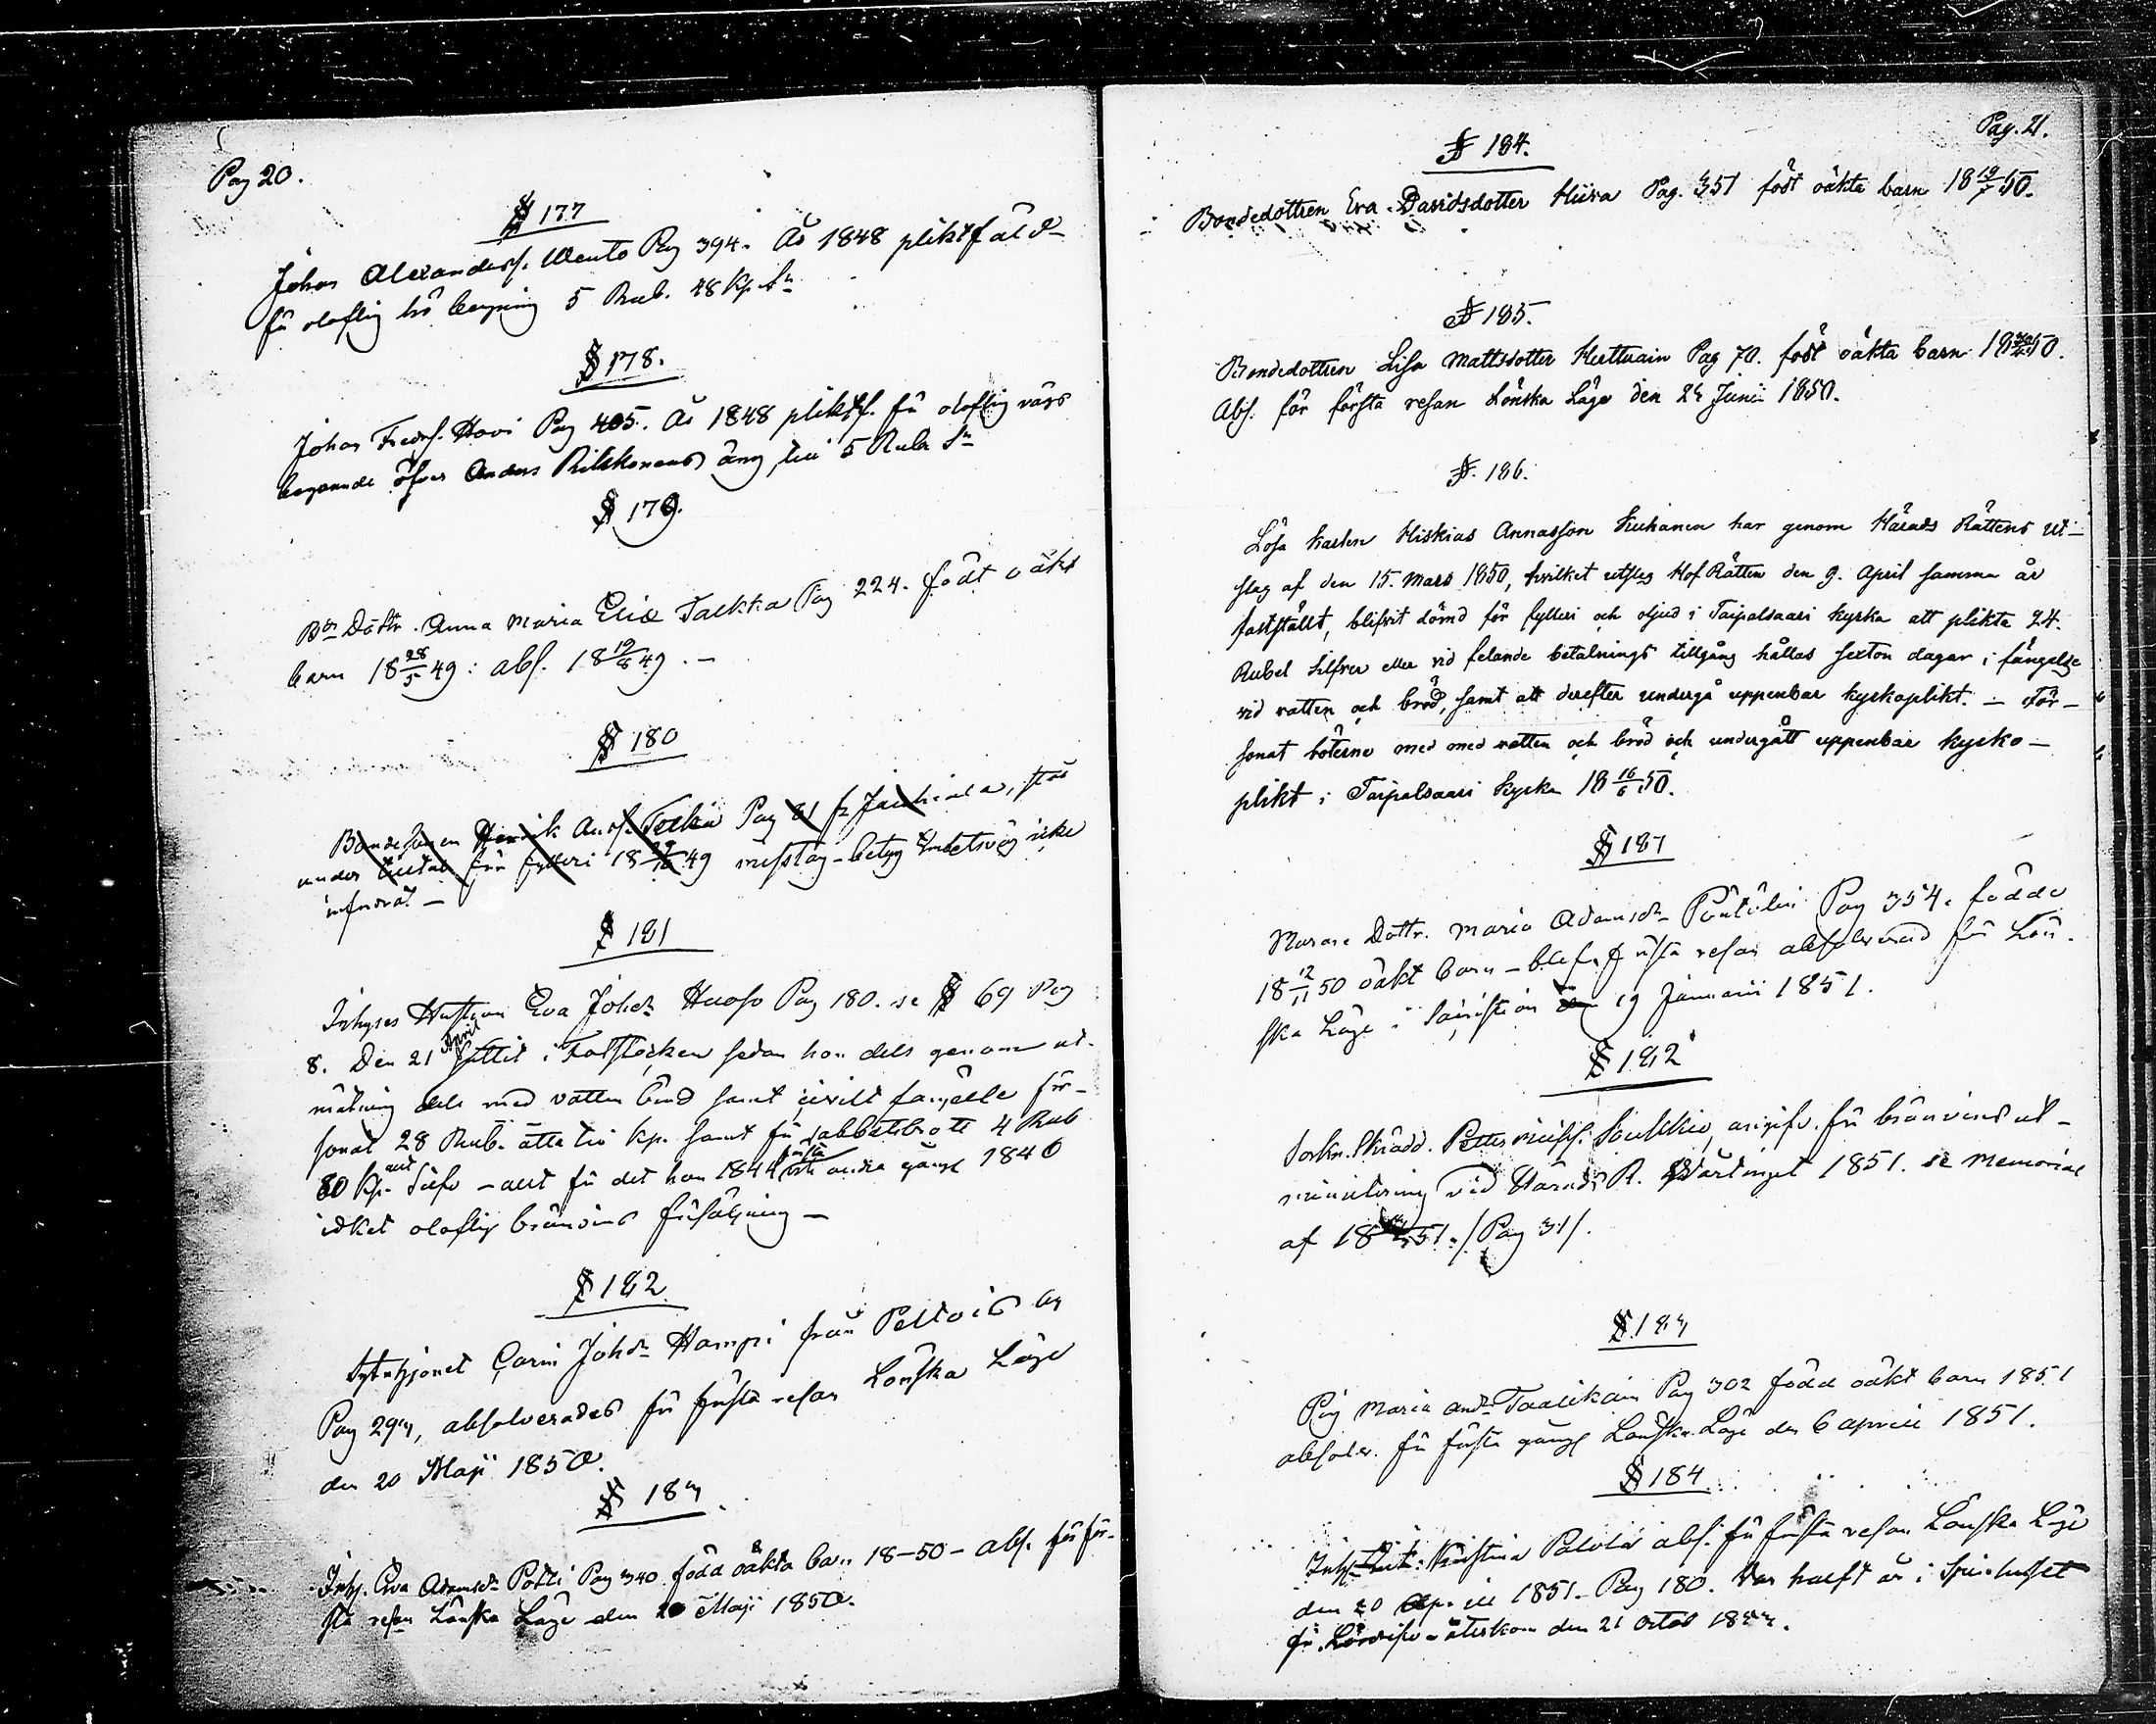 Pag 20.
§ 177
Johan Alexanderss. Wento Pag 394. År 1848 pliktfäld
för oloflig hö bergning 5 Rub. 48 Kp. Sr
§ 178.
Johan Fredrs. Hovi Pag 405. År 1848 pliktf. för oloflig vägs
begaende öfver Anders Rikkonens äng, till 5 Rub. Sr
§ 179.
Bde Dottr. Anna Maria Talkka Pag 224. födt oäkt
barn 18 28/5 49: abs. 18 19/8 49. –
§ 180
Bondesonen Henrik Pag 81 fr
under för fylleri 18 49 misstag – betyg Embetsväg icke
infordrat –
§ 181
Inhyses Hustrun Eva Johdr Huoso Pag 180. se § 69 Pag
8. Den 21 April suttit i Fotstocken sedan hon dels genom ut-
mätning dels med vatten bröd samt civilt fängelse för-
sonat 28 Rub. åttatio Kp. samt för sabbatsbrott 4 Rub
80 Kp. Silfv – allt för det hon 1844 första andra gång 1840
idket oloflig bränvins försäljning –
§ 182.
Sytninghjonet Carin Johdr Hampi från Peltois by
Pag 293, absolverades för första resan Lönska Läge
den 20 Maji 1850.
§ 183
Inhs. Eva Adamsdr Potti Pag 340 född oäkta barn 18–50 – abs. för för-
sta resan Lönska Läge den 20 Maji 1850.
Pag. 21.
§ 184.
Bondedottren Eva Davidsdotter Hiira Pag. 351 födt oäkta barn 18 19/5 50.
§ 185.
Bondedottren Lisa Mattsdotter Herttuain Pag 70. födt oäkta barn 18 50.
Abs. för första resan Lönska Läge den 24 Junii 1850.
§. 186.
Lösa karlen Hiskias Annasson Kuhanen har genom Härads Rättens ut-
slag af den 15. Mars 1850, hvilket utslag Hof Rätten den 9. April samma år
fastställt, blifvit dömd för fylleri och oljud i Taipalsaari kyrka att plikta 24.
Rubel Silfver eller vid felande betalnings tillgång hållas sexton dagar i fängelse
vid vatten och bröd, samt att derefter undergå uppenbar kyrkoplikt. – För-
sonat böterne med med vatten och bröd och undergått uppenbar kyrko-
plikt i Taipalsaari kyrka 18 16/6 50.
§ 181
Dottr. Maria Adamsdr Pöntölin Pag 354. födde
18 12/11 50 oäkt barn – blef första resan absolverad för Lön-
ska Läge i den 19 Januarii 1851.
§ 182
Sockn. Skrädd. Petter angifv. för bränvins ut-
minutering vid Härads R. Wårtinget 1851. se Memorial
af 18 51. /Pag 31/.
§. 183
Pig Maria Andr Taalikain Pag 302 födde oäkt barn 1851
absolv. för första gång Lönska Läge den 6 April 1851.
§ 184
Inhs Kristina Palola abs. för första resan Lönska Läge
den 20 April 1851. Pag 180. Var halft år i Spinhuset
för – återkom den 21 Octob